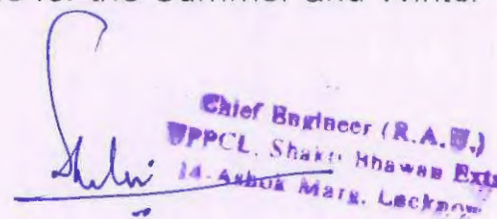 for the Summer and Winter
Chief Engineer (R.A.U.)
UPPCL, Shakti Bhawan Extn
14-Ashok Marg, Lucknow